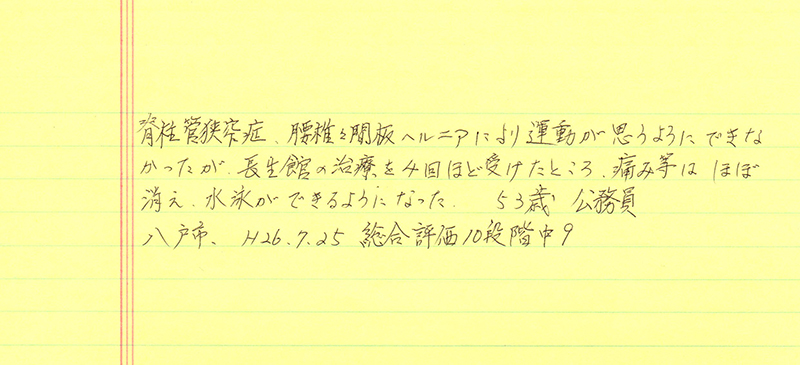 脊柱管狭窄症、腰椎々間板ヘルニアにより運動が思うようにできな
かったが、長生館の治療を4回ほど受けたところ、痛み等はほぼ
消え、水泳ができるようになった。 53歳 公務員
八戸市、 H26.7.25 総合評価10段階中9